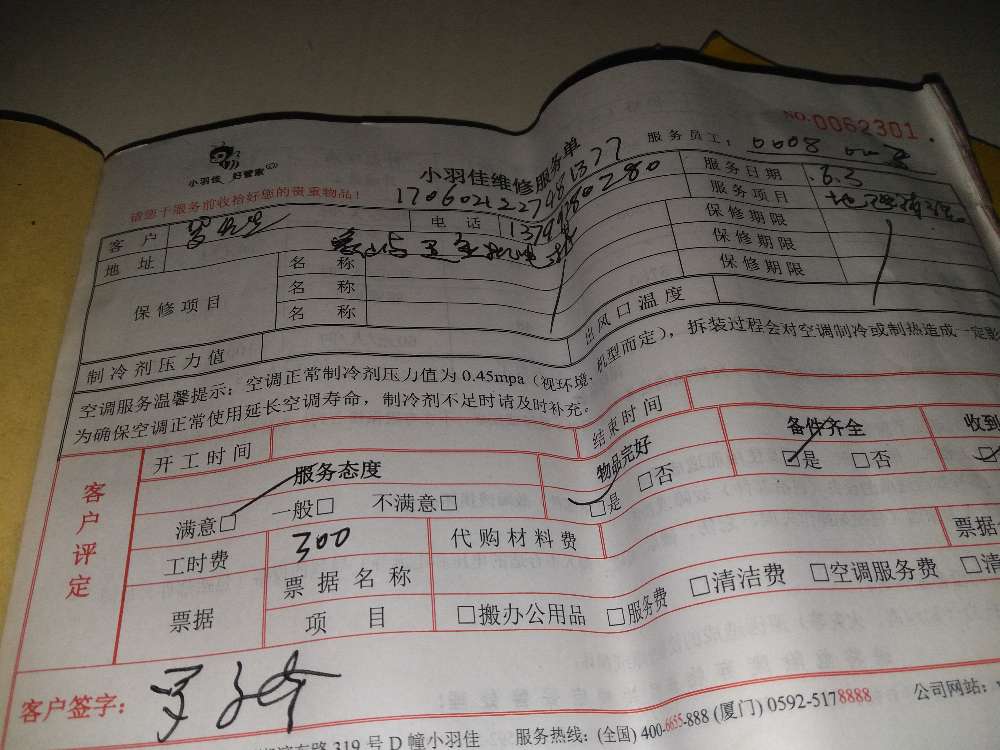 NO:0062301
小羽佳 好管家
小羽佳维修服务单
服务员工: 0008
请您于服务前收拾好您的贵重物品!
服务日期 6.3
客户
电话 13799280280
服务项目
地址
保修期限
保修项目 名称
保修期限
名称
保修期限
名称
制冷剂压力值 出风口温度
空调服务温馨提示: 空调正常制冷剂压力值为0.45mpa(视环境、机型而定), 拆装过程会对空调制冷或制热造成一定
为确保空调正常使用延长空调寿命, 制冷剂不足时请及时补充。
客户评定
开工时间 结束时间
服务态度 物品完好 备件齐全 收到
满意□ 一般□ 不满意□ □是 □否 □是 □否
工时费 300 代购材料费
票据 票据名称 票据
项目 □搬办公用品 □服务费 □清洁费 □空调服务费 □清
客户签字:
路319号D幢小羽佳 服务热线: (全国) 400-6655-888 (厦门) 0592-5178888 公司网站: